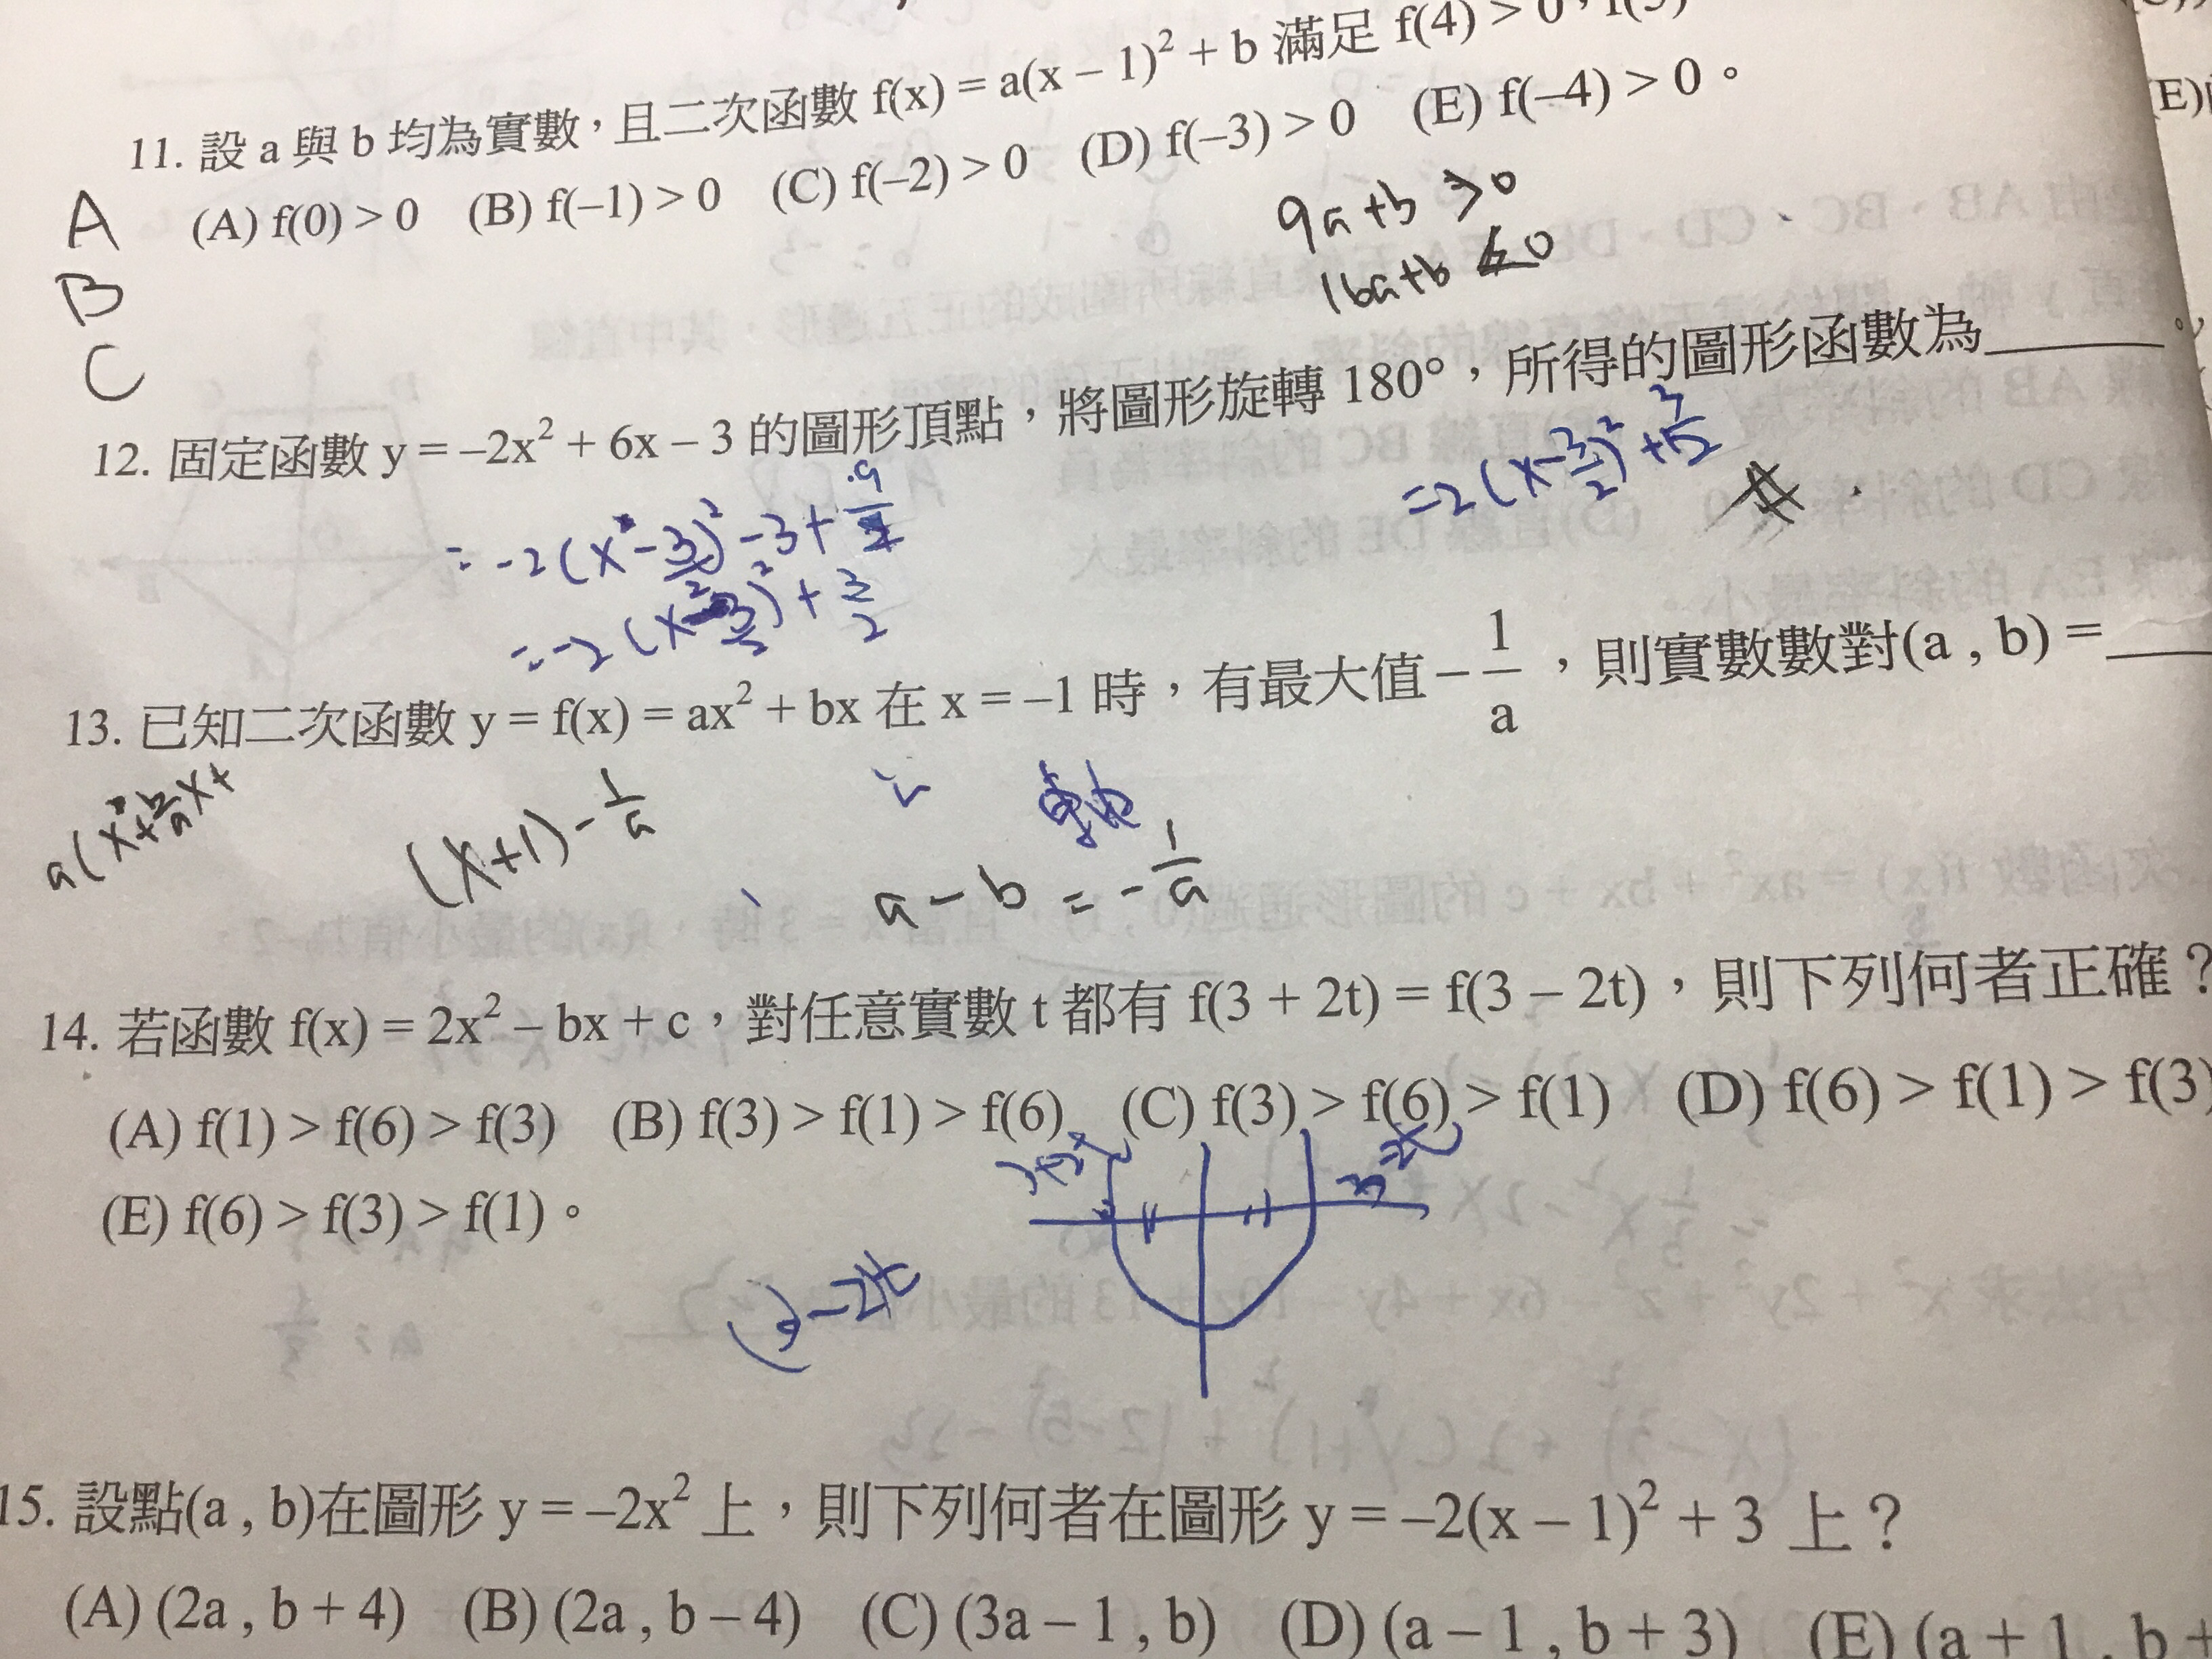 11. 設 a 與 b 均為實數，且二次函數 f(x) = a(x – 1)² + b 滿足 f(4) > 0，
(A) f(0) > 0 (B) f(–1) > 0 (C) f(–2) > 0 (D) f(–3) > 0 (E) f(–4) > 0。
A
B
C
9a+b >0
16a+b <0
12. 固定函數 y = –2x² + 6x – 3 的圖形頂點，將圖形旋轉 180°，所得的圖形函數為______。
= -2(x-3/2)² -3+9/2
= -2(x-3/2)² + 3/2
=2(x-3/2)²+3/2
13. 已知二次函數 y = f(x) = ax² + bx 在 x = –1 時，有最大值 –1/a，則實數數對(a , b) =____
a(x²+b/a x+
(x+1)-1/a
軸
a-b = -1/a
14. 若函數 f(x) = 2x² – bx + c，對任意實數 t 都有 f(3 + 2t) = f(3 – 2t)，則下列何者正確？
(A) f(1) > f(6) > f(3) (B) f(3) > f(1) > f(6) (C) f(3) > f(6) > f(1) (D) f(6) > f(1) > f(3)
(E) f(6) > f(3) > f(1)。
15. 設點(a , b)在圖形 y = –2x² 上，則下列何者在圖形 y = –2(x – 1)² + 3 上？
(A) (2a , b + 4) (B) (2a , b – 4) (C) (3a – 1 , b) (D) (a – 1 , b + 3) (E) (a + 1 , b +